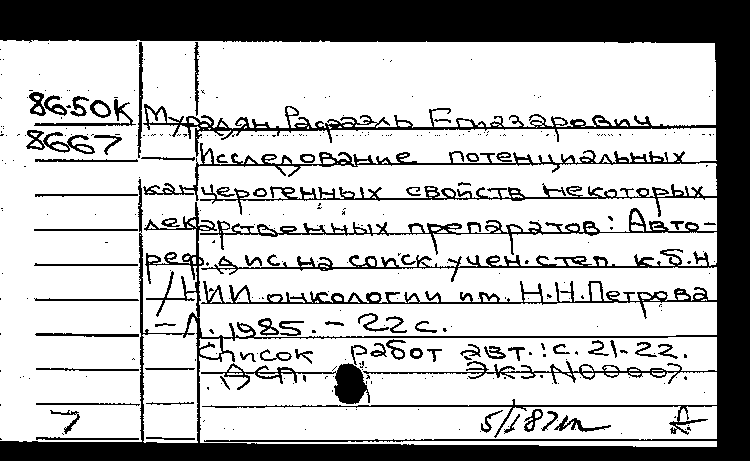 86-50К Мурадян, Рафаэль Егиазарович.
8667 Исследование потенциальных
канцерогенных свойств некоторых
лекарственных препаратов: Авто-
реф. дис. на соиск. учен. степ. к.б.н.
/ НИИ онкологии им. Н.Н.Петрова
.-Л., 1985. - 22 с.
Список работ авт.: с. 21-22.
ДСП. Экз. N00007.
7